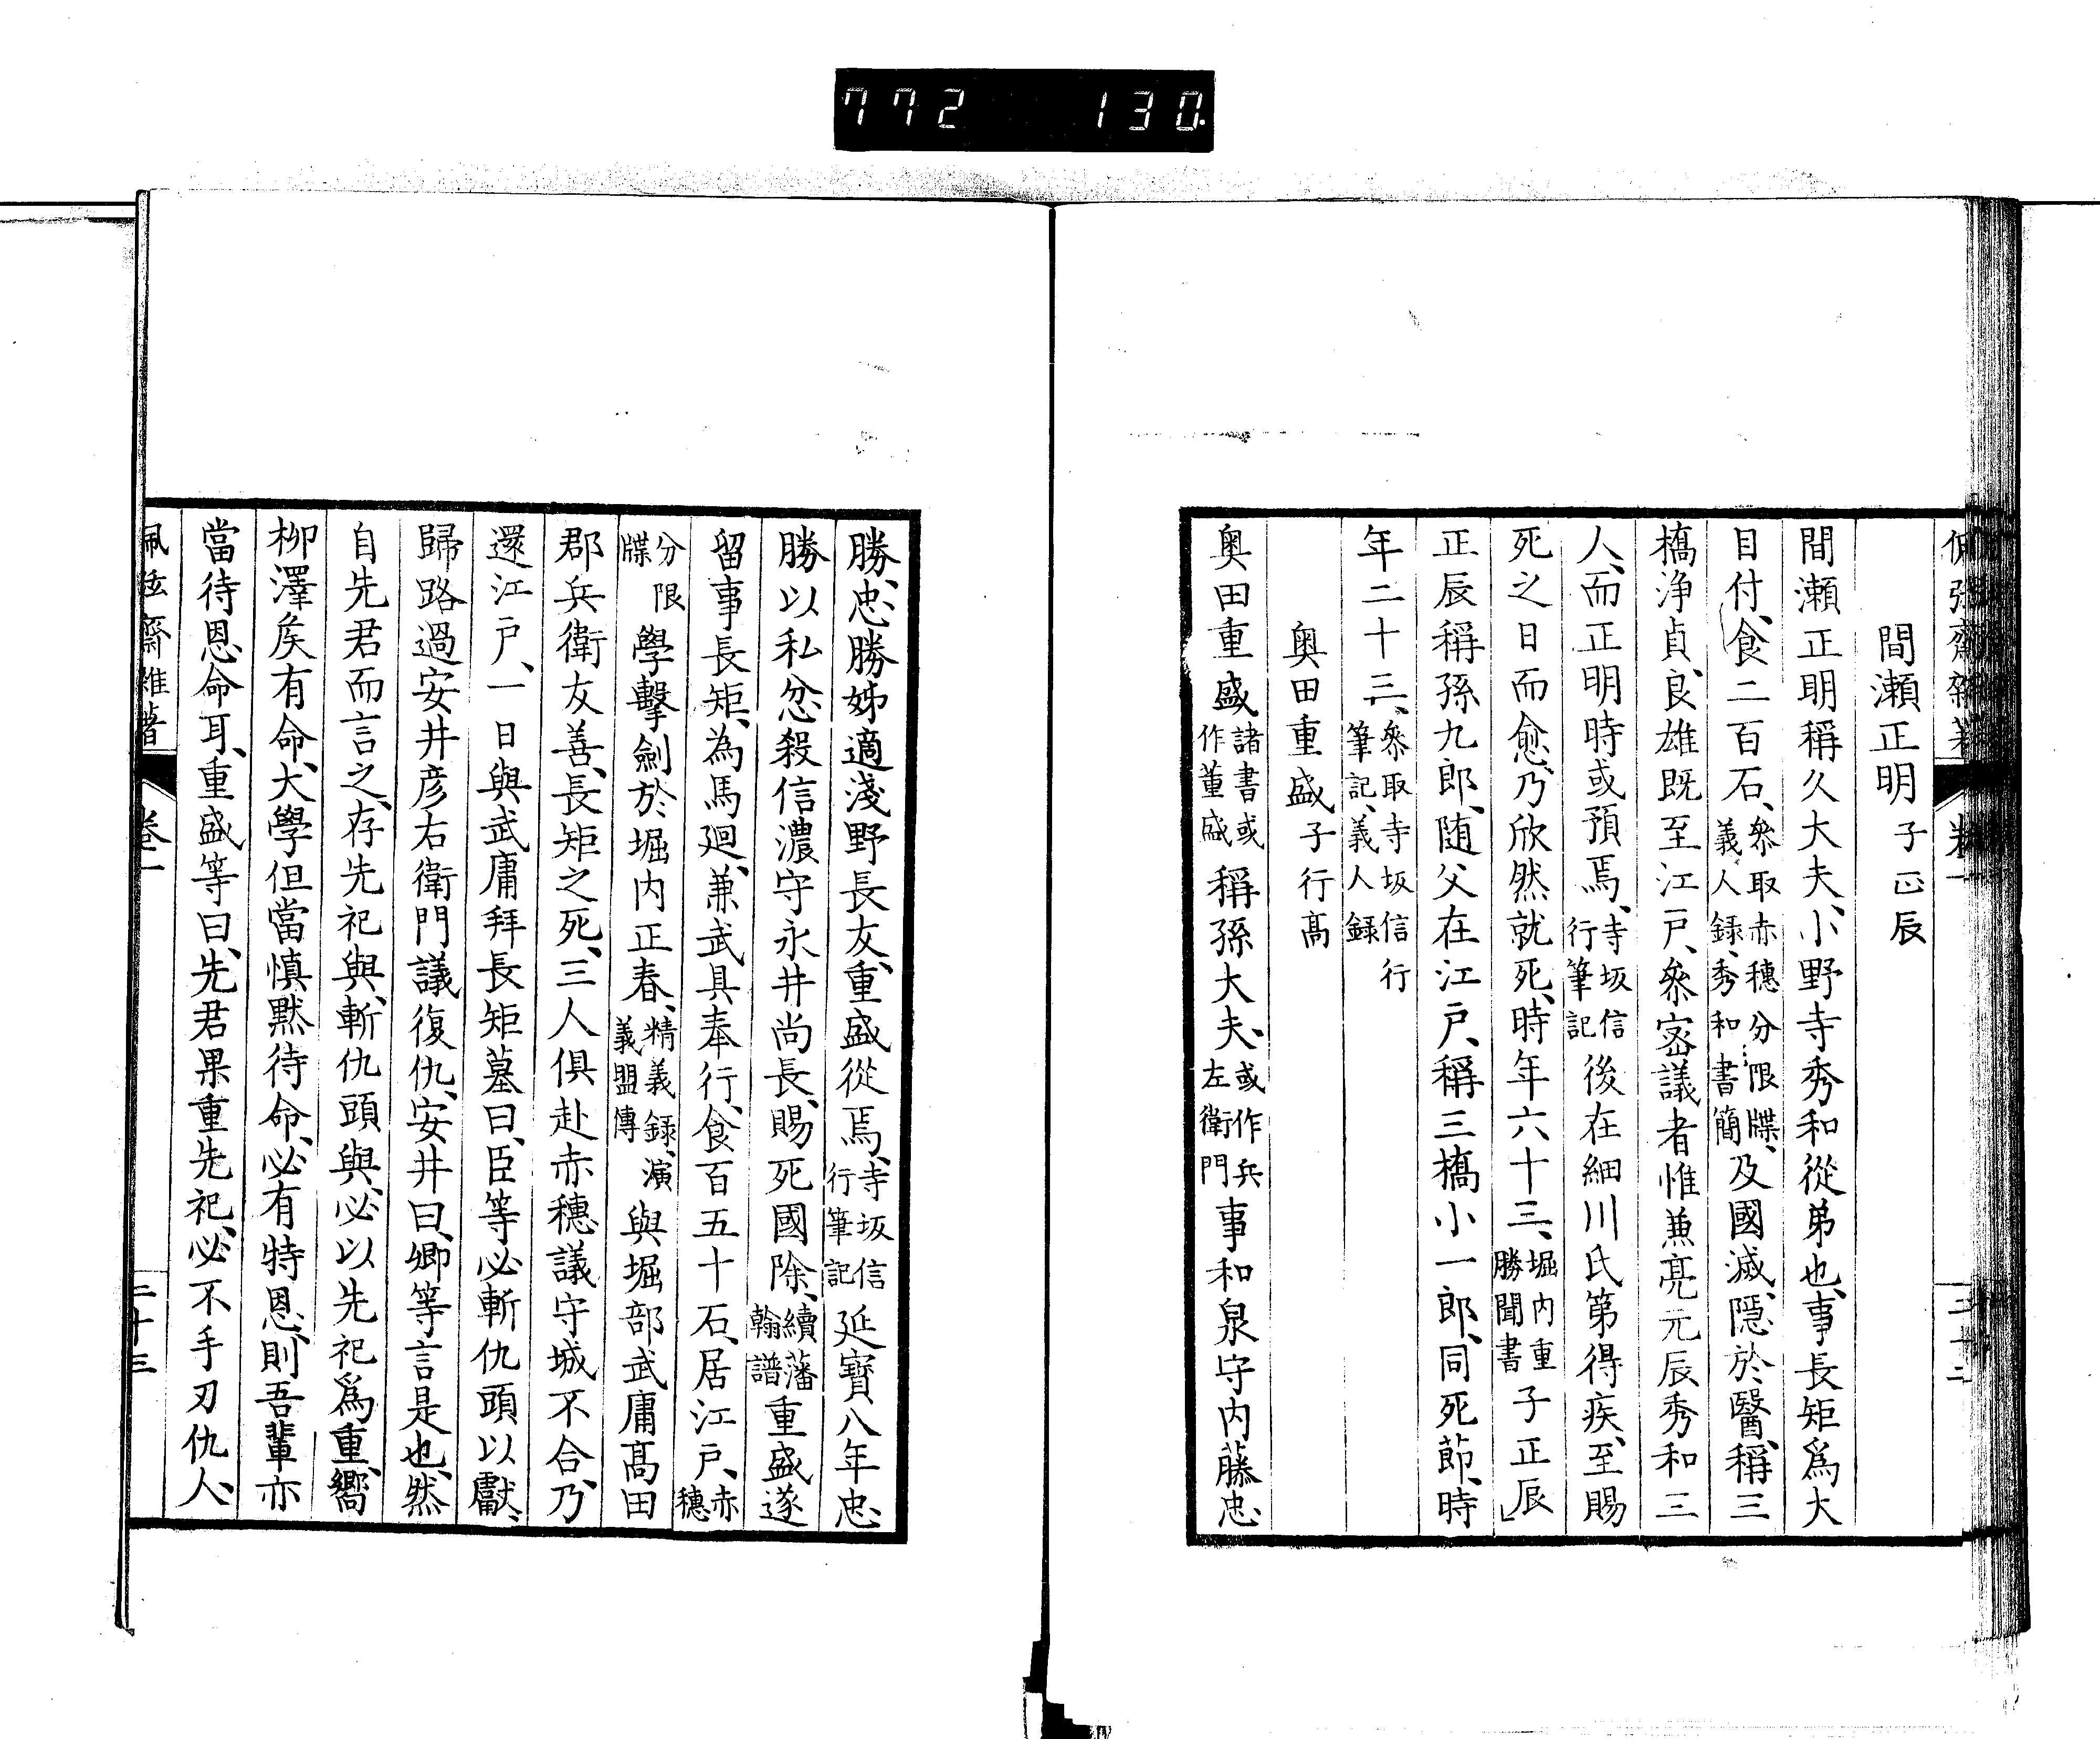 772 130
佩弦齋雜著 卷一 二十二
間瀬正明 子正辰
間瀬正明稱久大夫、小野寺秀和從弟也、事長矩爲大
目付、食二百石、參取赤穗分限牒、義人録、秀和書簡、及國滅、隱於醫、稱三
橋浄貞、良雄既至江戸、參密議者惟兼亮元辰秀和三
人、而正明時或預焉、寺坂信行筆記後在細川氏第得疾、至賜
死之日而愈、乃欣然就死、時年六十三、堀内重勝聞書子正辰」
正辰稱孫九郎、随父在江戸、稱三橋小一郎、同死節、時
年二十三、參取寺坂信行筆記、義人録
奥田重盛 子行高
奥田重盛諸書或作董盛稱孫大夫、或作兵左衛門事和泉守内藤忠
勝、忠勝姊適淺野長友、重盛從焉、寺坂信行筆記延寶八年忠
勝以私忿殺信濃守永井尚長、賜死國除、續藩翰譜重盛遂
留事長矩、為馬廻、兼武具奉行、食百五十石、居江戸、赤穗
分限牒學擊劍於堀内正春、精義録、演義盟傳與堀部武庸髙田
郡兵衛友善、長矩之死、三人俱赴赤穗議守城不合、乃
還江戸、一日與武庸拜長矩墓曰、臣等必斬仇頭以獻、
歸路過安井彦右衛門議復仇、安井曰、卿等言是也、然
自先君而言之、存先祀與斬仇頭與、必以先祀爲重、嚮
柳澤矦有命、大學但當慎黙待命、必有特恩、則吾輩亦
當待恩命耳、重盛等曰、先君果重先祀、必不手刃仇人、
佩弦齋雜著 卷一 二十三